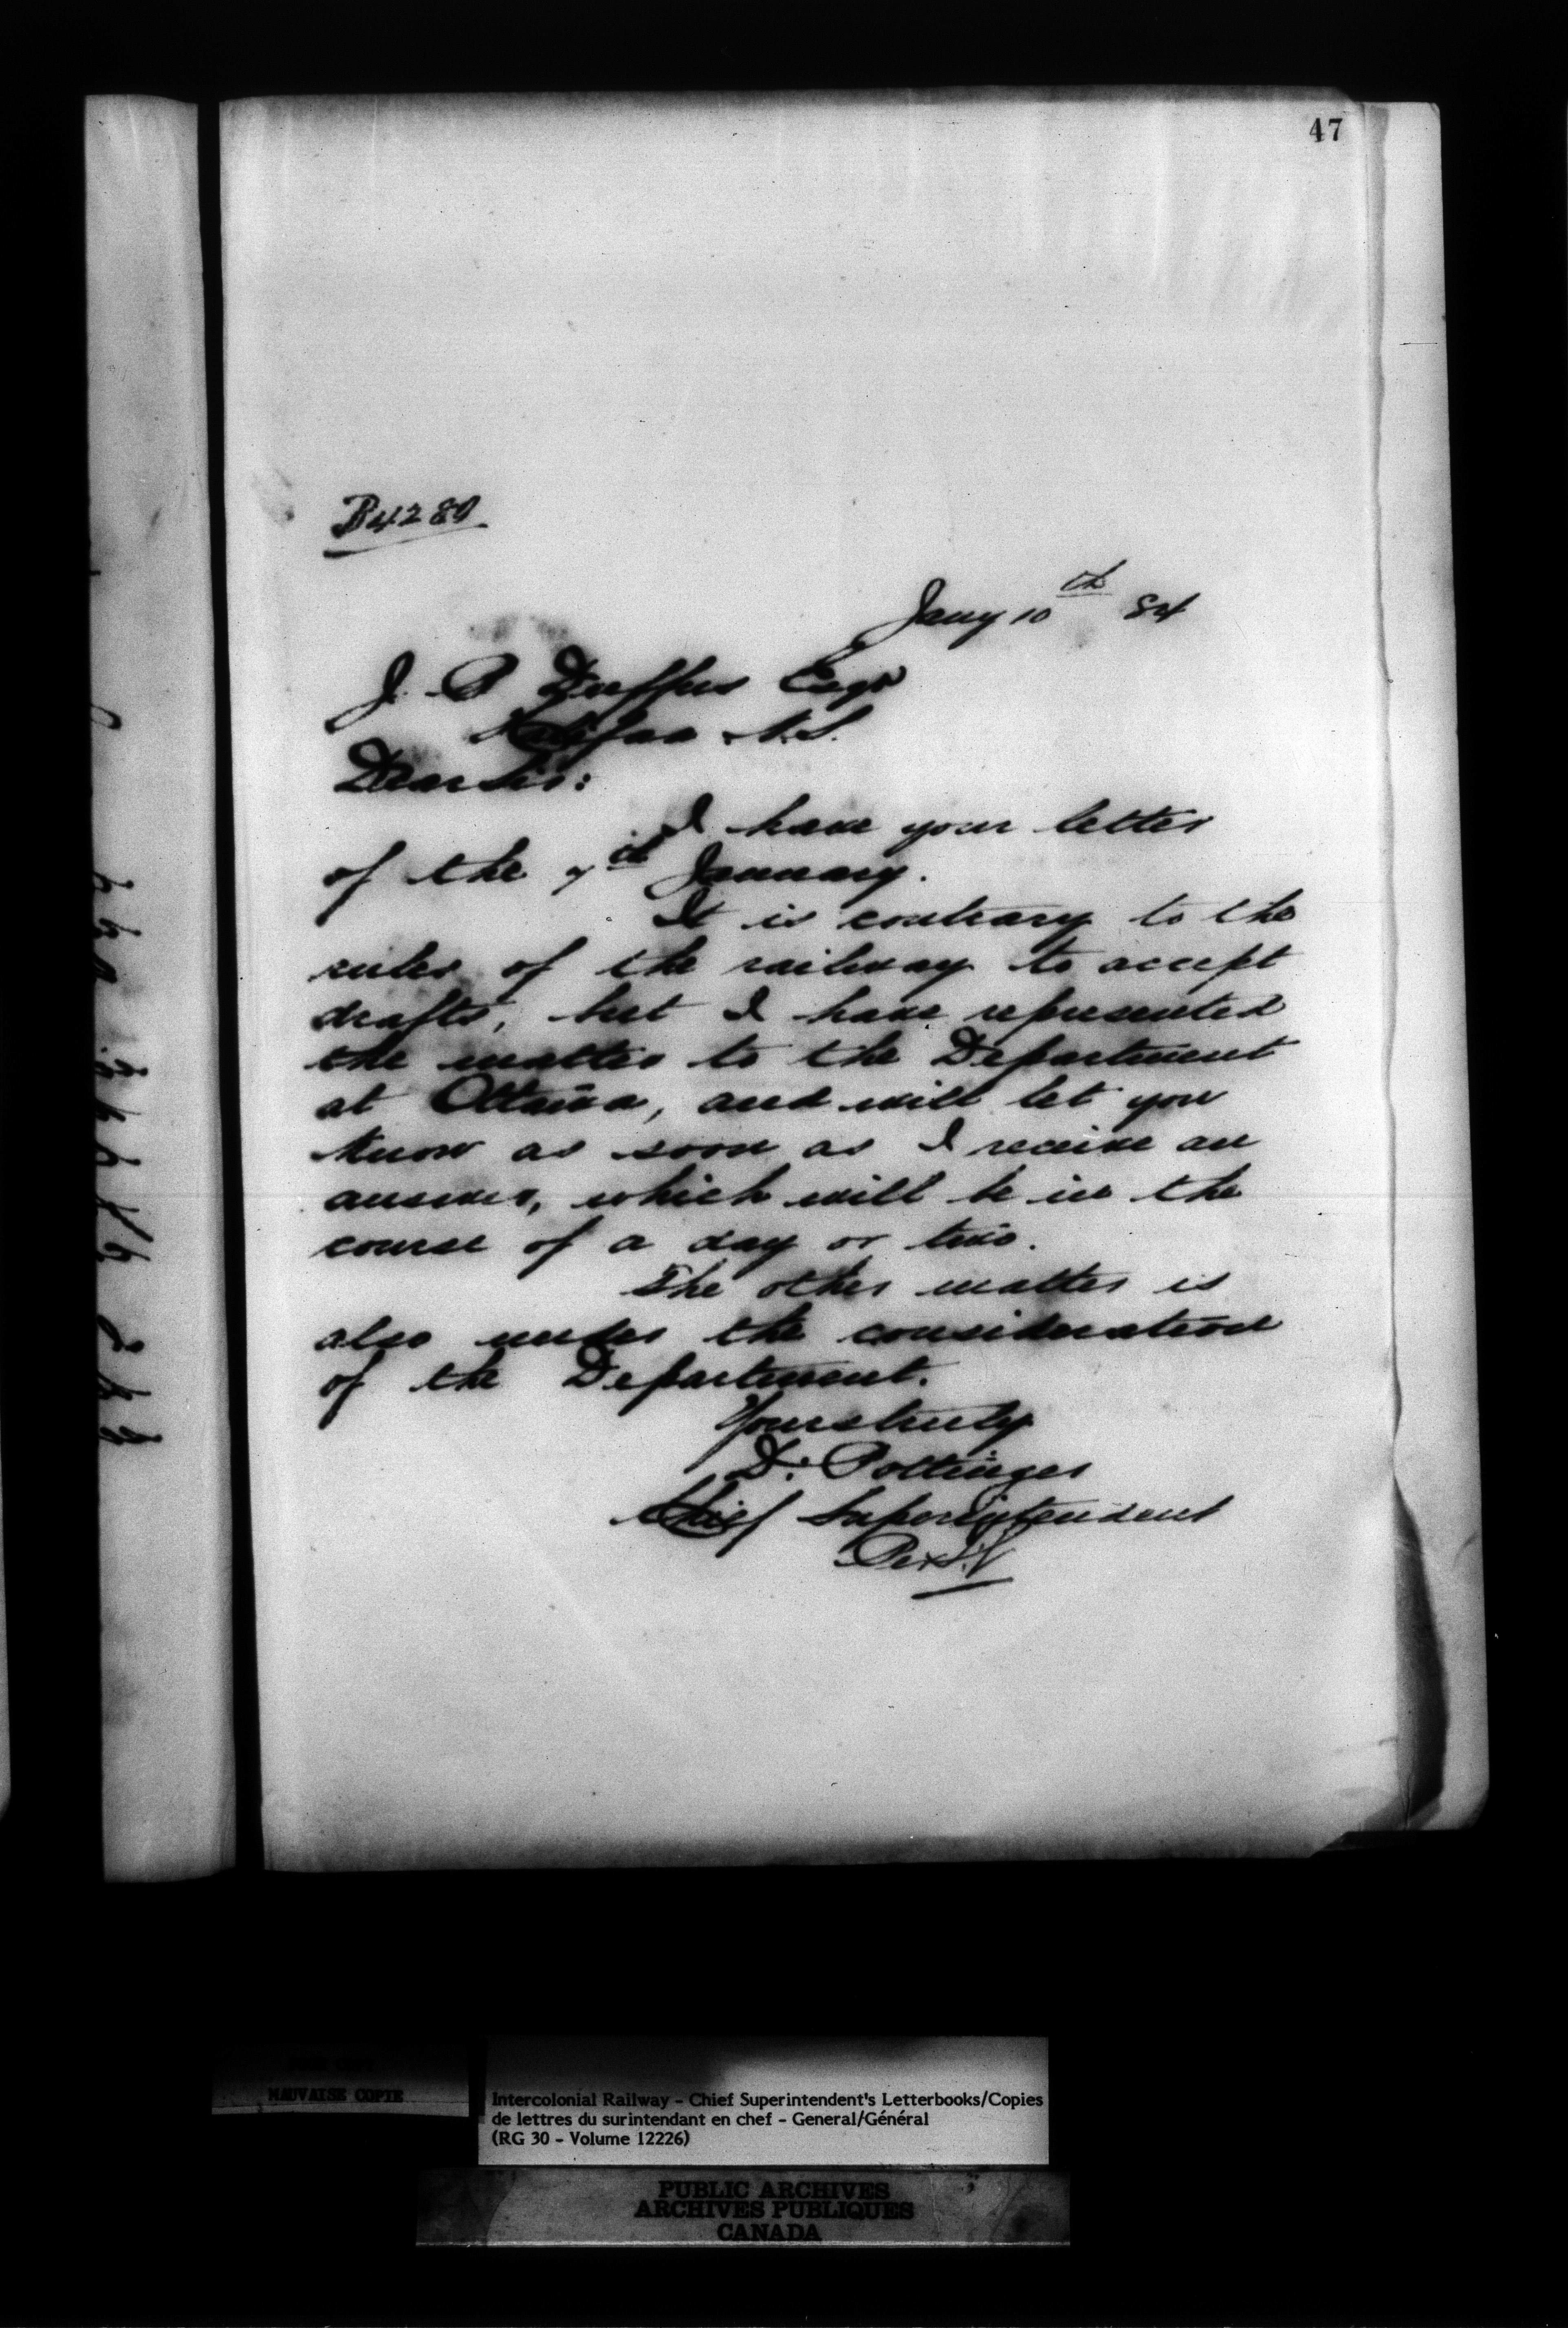 47
B4280
Jany 10th 84
J. B Duffus Esqr
Halifax N.S.
Dear Sir:
I have your letter
of the 7th January.
It is contrary to the
rules of the railway to accept
drafts, but I have represented
the matter to the Department
at Ottawa, and will let you
know as soon as I receive an
answer, which will be in the
course of a day or two.
The other matter is
also under the consideration
of the Department.
Yours truly
D. Pottinger
Chief Superintendent
Per
MAUVAISE COPIE
Intercolonial Railway - Chief Superintendent's Letterbooks/Copies
de lettres du surintendant en chef - General/Général
(RG 30 - Volume 12226)
PUBLIC ARCHIVES
ARCHIVES PUBLIQUES
CANADA